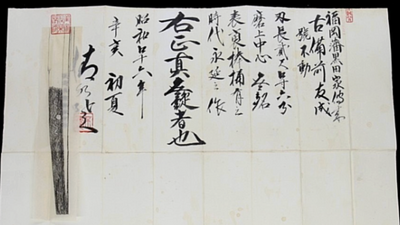 福岡藩黒田家伝来
古備前友成
号不動
刃長貳尺
磨上中心 無銘
表裏棒樋有之
時代永延之作
右正真無疑者也
昭和四十六年
辛亥 初夏